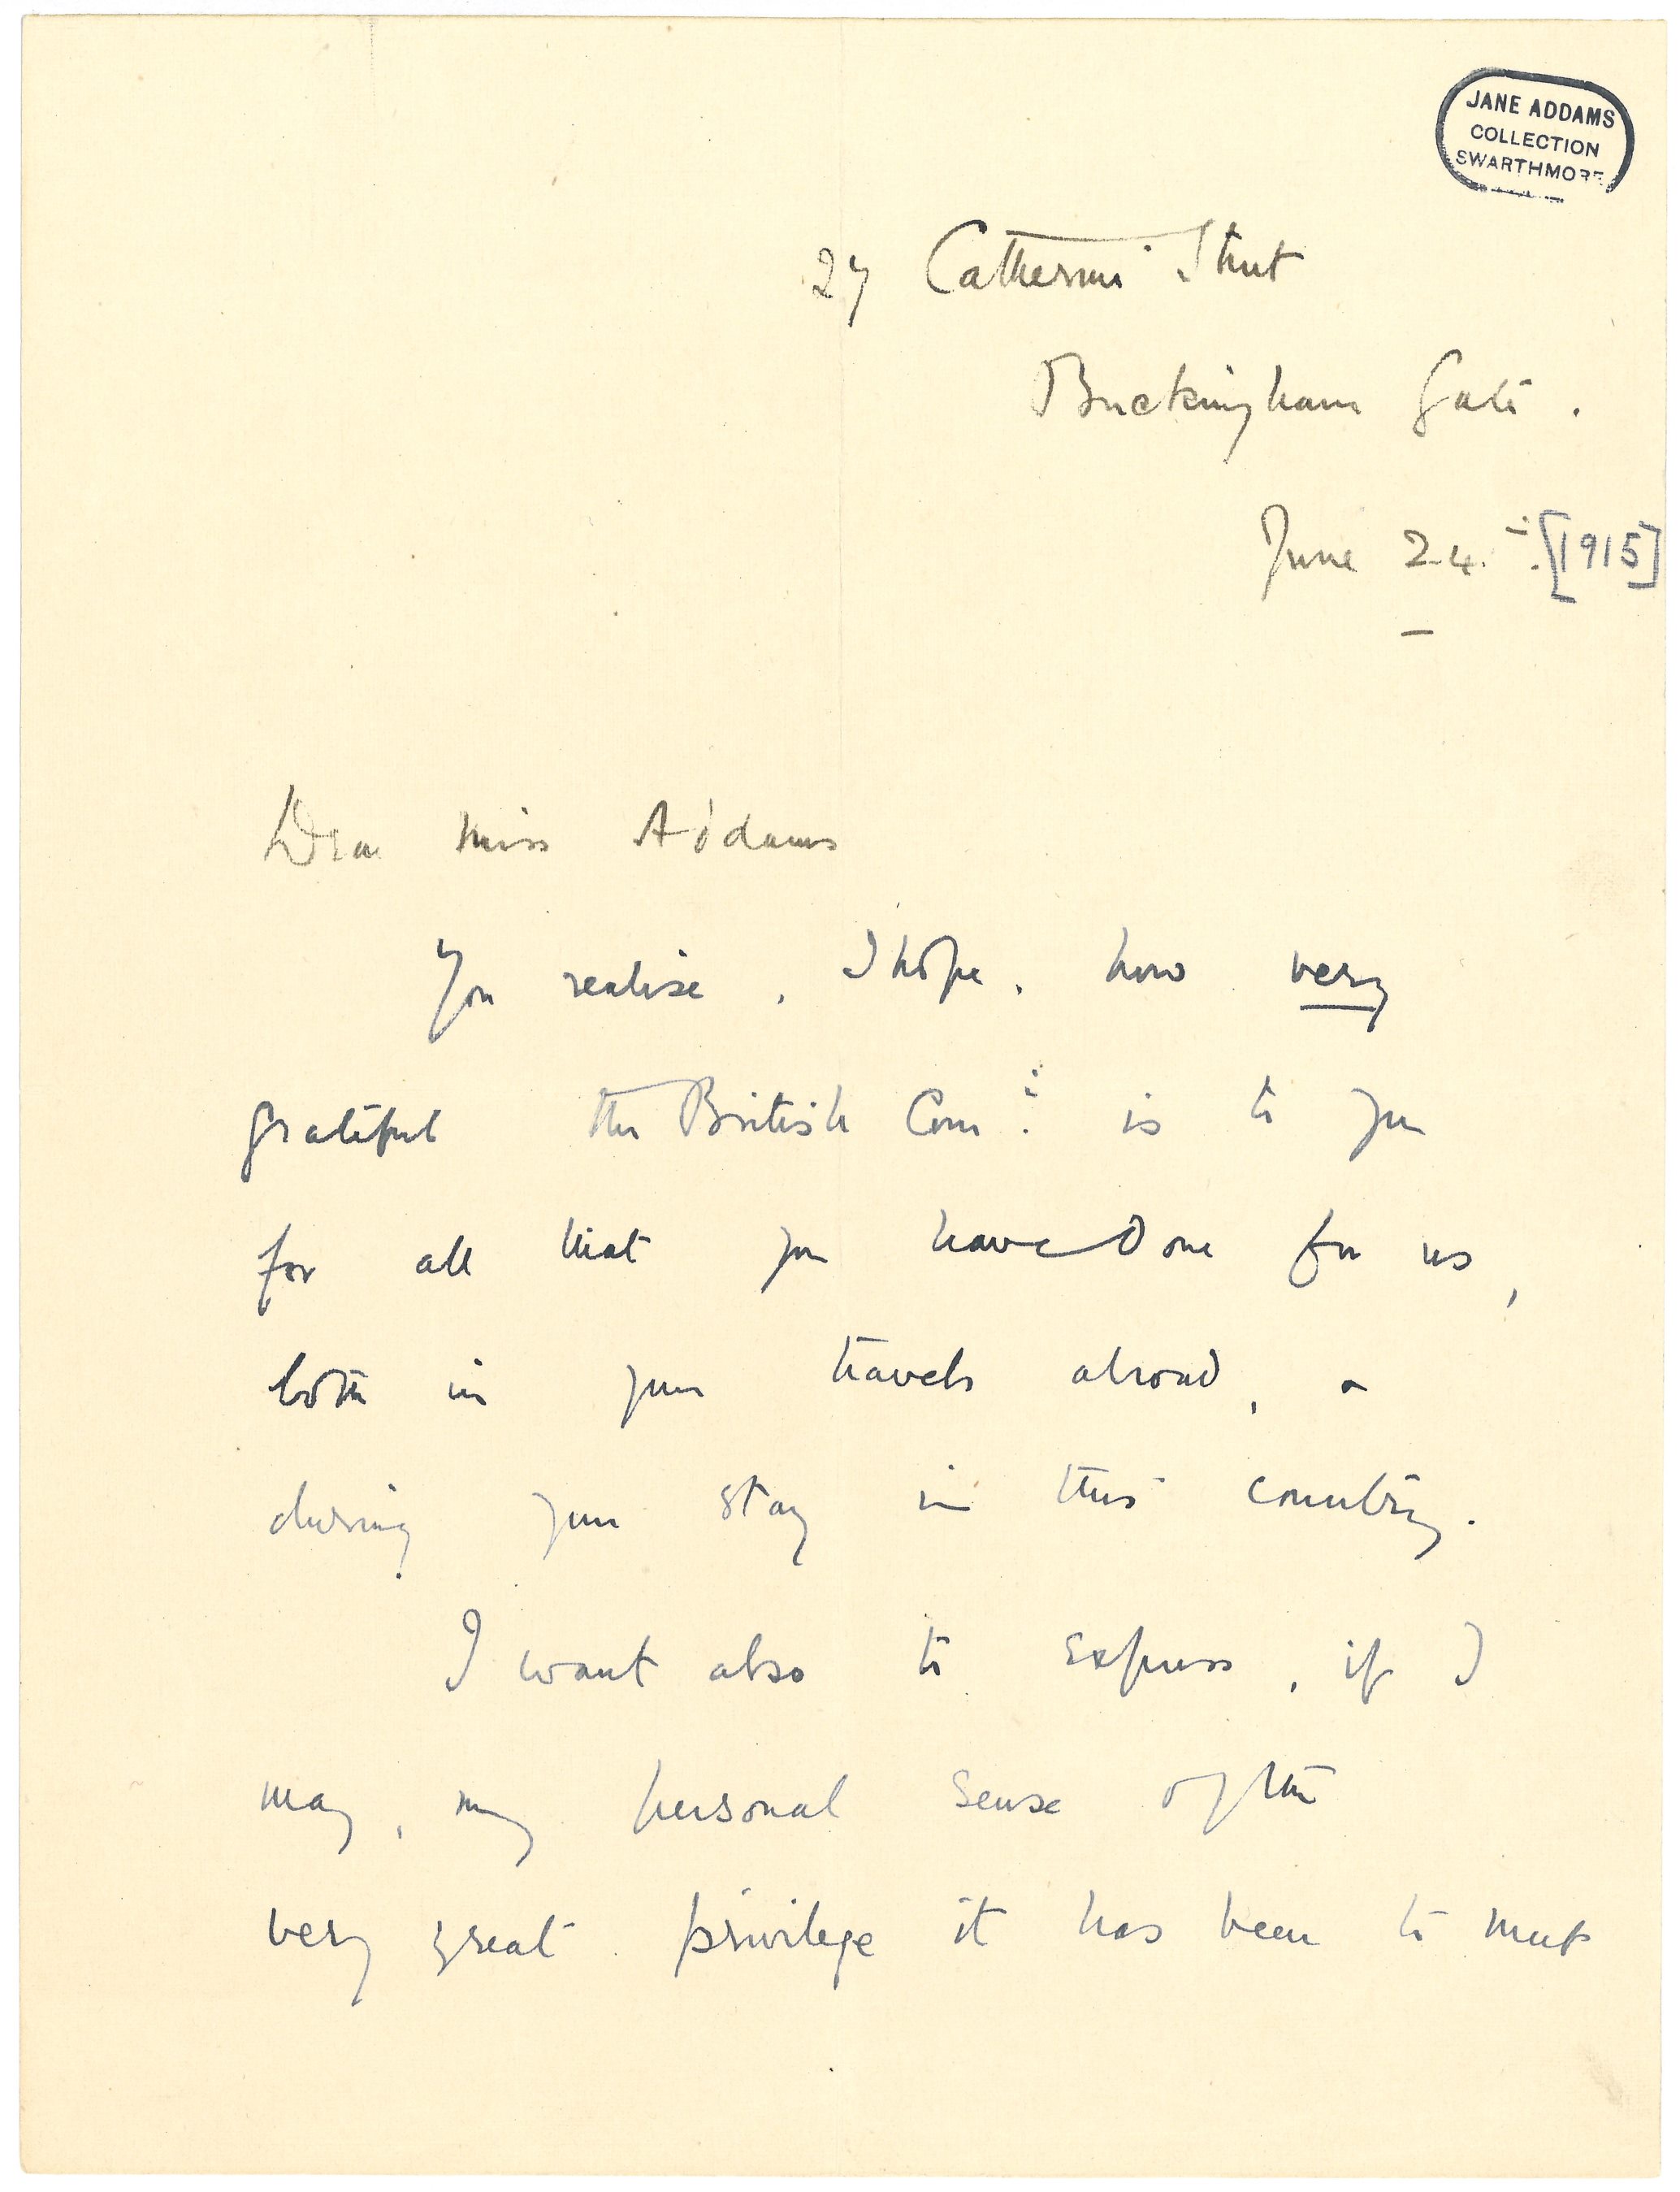 JANE ADDAMS
COLLECTION
SWARTHMORE
27 Catherine Street
Buckingham Gate.
June 24. [1915]
Dear Miss Addams
You realise, I hope, how very
grateful the British Com: is to you
for all that you have done for us,
both in your travels abroad, &
during your stay in this country.
I want also to express, if I
may, my personal sense of the
very great privilege it has been to meet